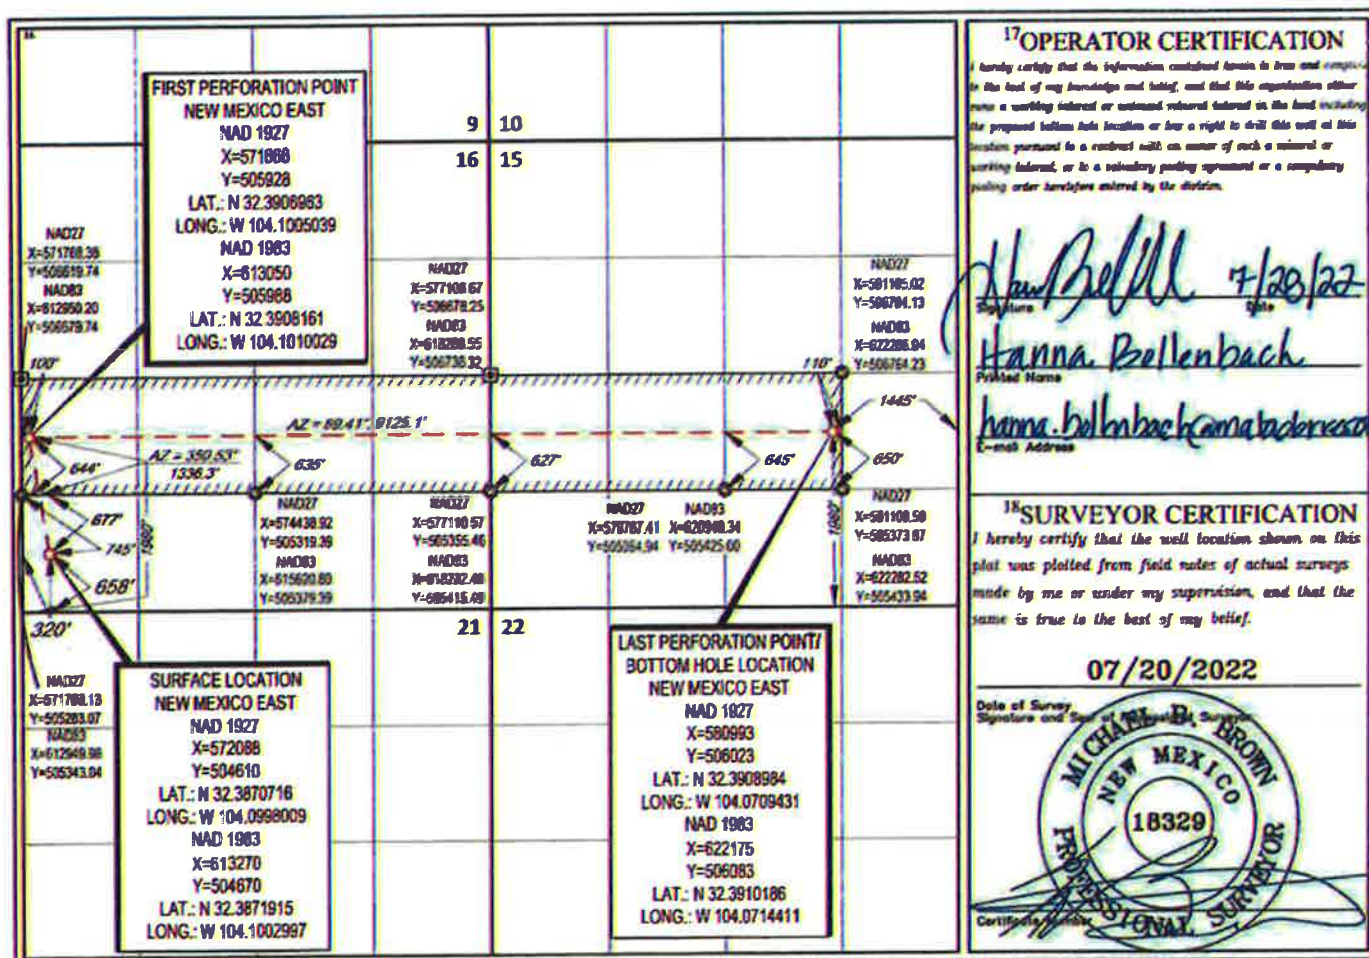 FIRST PERFORATION POINT
NEW MEXICO EAST
NAD 1927
X=571868
Y=505928
LAT.: N 32.3906963
LONG.: W 104.1005039
NAD 1983
X=613050
Y=505988
LAT.: N 32.3908161
LONG.: W 104.1010029
9 10
16 15
NAD27
X=571768.36
Y=506619.74
NAD83
X=612950.20
Y=506679.74
NAD27
X=577108.67
Y=506678.25
NAD83
Y=506738.32
NAD27
X=581105.02
Y=506704.13
NAD83
X=622286.94
Y=506764.23
100'
110'
1445'
AZ = 89.41°, 9125.1'
AZ = 350.53°
1336.3'
644'
635'
627'
645'
650'
677'
745'
658'
320'
1980'
1980'
NAD27
X=574438.92
Y=505319.39
NAD83
X=615620.80
Y=505379.39
NAD27
X=577110.57
Y=505355.46
NAD83
X=618292.48
Y=505415.49
NAD27 NAD83
Y=505364.94 Y=505425.00
NAD27
X=581100.58
Y=505373.87
NAD83
X=622282.52
Y=505433.94
21 22
NAD27
X=571768.13
Y=505283.07
NAD83
X=612949.98
Y=505343.04
SURFACE LOCATION
NEW MEXICO EAST
NAD 1927
X=572088
Y=504610
LAT.: N 32.3870716
LONG.: W 104.0998009
NAD 1983
X=613270
Y=504670
LAT.: N 32.3871915
LONG.: W 104.1002997
LAST PERFORATION POINT/
BOTTOM HOLE LOCATION
NEW MEXICO EAST
NAD 1927
X=580993
Y=506023
LAT.: N 32.3908984
LONG.: W 104.0709431
NAD 1983
X=622175
Y=506083
LAT.: N 32.3910186
LONG.: W 104.0714411
17 OPERATOR CERTIFICATION
I hereby certify that the information contained herein is true and complete
to the best of my knowledge and belief, and that this organization either
owns a working interest or unleased mineral interest in the land including
the proposed bottom hole location or has a right to drill this well at this
location pursuant to a contract with an owner of such a mineral or
working interest, or to a voluntary pooling agreement or a compulsory
pooling order heretofore entered by the division.
7/28/22
Signature Date
Hanna Bollenbach
Printed Name
E-mail Address
18 SURVEYOR CERTIFICATION
I hereby certify that the well location shown on this
plat was plotted from field notes of actual surveys
made by me or under my supervision, and that the
same is true to the best of my belief.
07/20/2022
Date of Survey
Signature and Seal of Professional Surveyor
MICHAEL B. BROWN
NEW MEXICO
18329
PROFESSIONAL SURVEYOR
Certificate Number